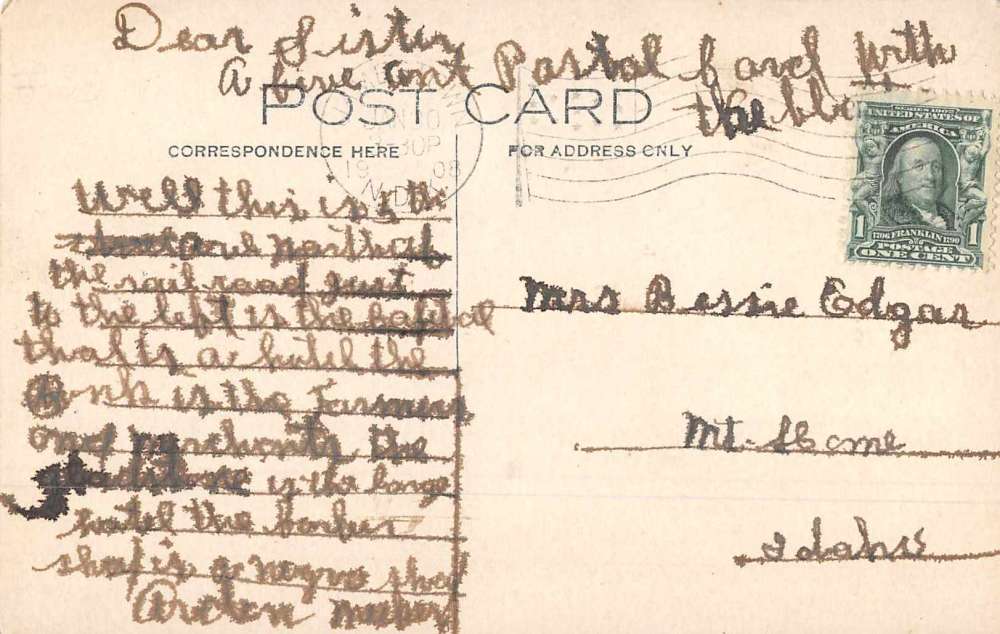 Dear Sister
A fine ant Postal Card with
the blot
POST CARD
CORRESPONDENCE HERE
FOR ADDRESS ONLY
JAN 10
30P
19 08
N.D.
SERIES 1902
UNITED STATES OF
AMERICA
1 1
1706 FRANKLIN 1790
POSTAGE
ONE CENT
Well this is th
one north of
the rail road just
to the left is the capitol
that is a hutel the
Bonk is the Farmers
and merchants the
gladstone is the large
hutel the barber
shop is a negro shop
Arden
Mrs Bessie Edgar
Mt. Home
Idaho